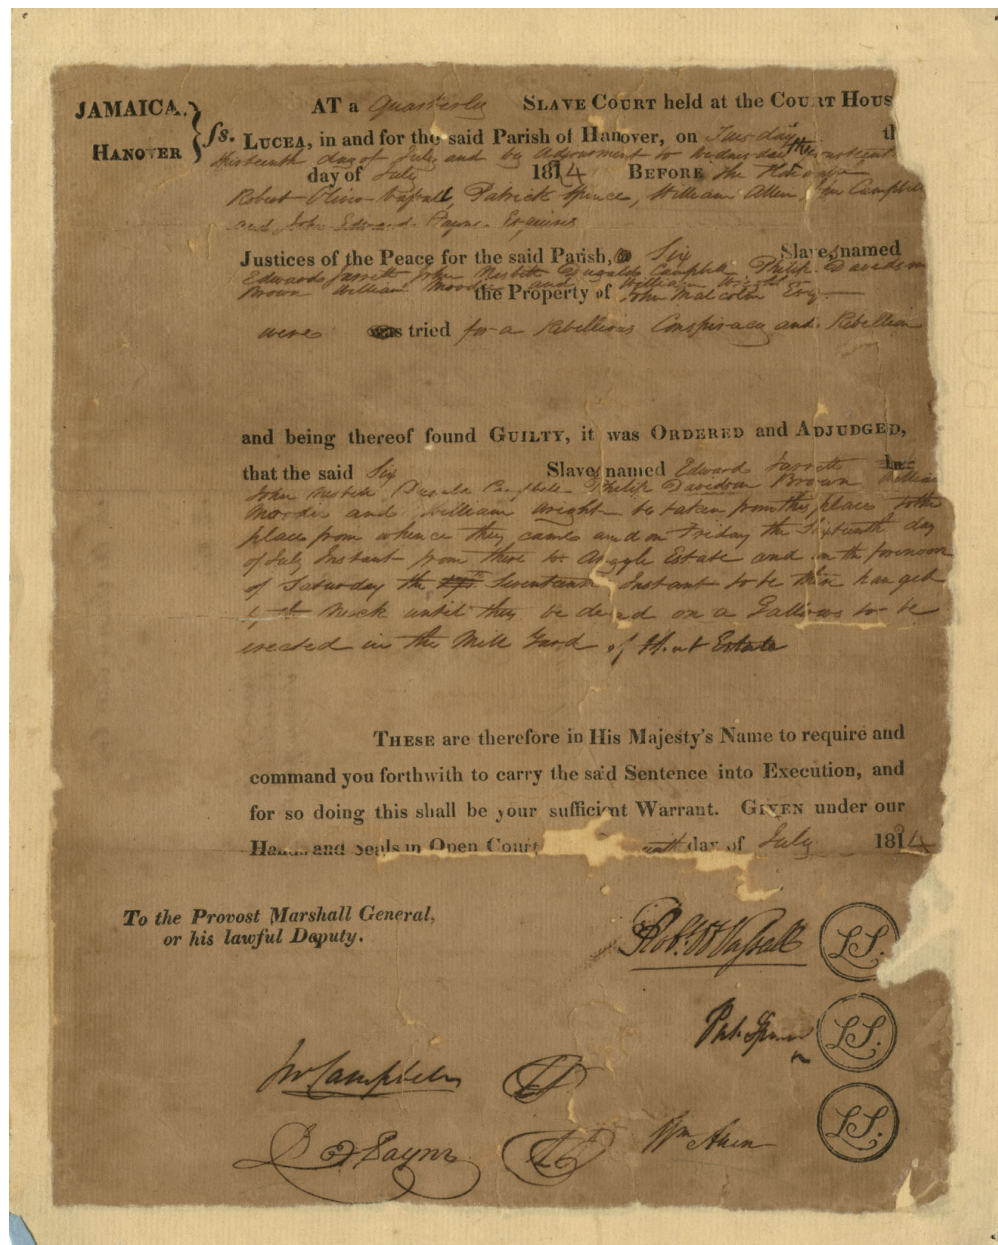 JAMAICA.
HANOVER
ss.
AT a Quarterly SLAVE COURT held at the COURT HOUS
LUCEA, in and for the said Parish of Hanover, on Tuesday th
thirteenth day of July and by Adjournment to Wednesday the
day of July 1814 BEFORE the
Robert Vassall, Patrick Spence, William Allen, Campbell
and John Edward Payne Esquires
Justices of the Peace for the said Parish, Six Slaves named
Edward Jarrett John Nesbith Dugald Campbell Philip Davidson
Brown William Moodie and William Wright
the Property of John Malcolm Esq
were was tried for a Rebellious Conspiracy and Rebellion
and being thereof found GUILTY, it was ORDERED and ADJUDGED,
that the said Six Slaves named Edward Jarrett
John Nesbith Dugald Campbell Philip Davidson Brown William
Moodie and William Wright be taken from this place to the
place from whence they came and on Friday the Sixteenth day
of July Instant from thence to Argyle Estate and in the forenoon
of Saturday the Seventeenth Instant to be there hanged
by the Neck until they be dead on a Gallows to be
erected in the Mill Yard of that Estate
THESE are therefore in His Majesty's Name to require and
command you forthwith to carry the said Sentence into Execution, and
for so doing this shall be your sufficient Warrant. GIVEN under our
Hands and Seals in Open Court day of July 1814
To the Provost Marshall General,
or his lawful Deputy.
Robt Vassall LS.
Pat. Spence LS.
Jn Campbell LS
Wm Allen LS.
J E Payne LS